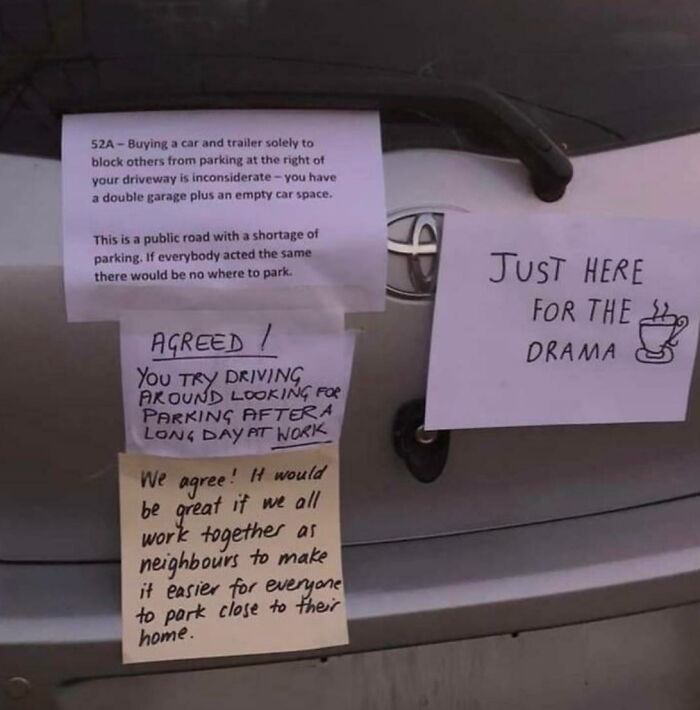 52A – Buying a car and trailer solely to
block others from parking at the right of
your driveway is inconsiderate – you have
a double garage plus an empty car space.
This is a public road with a shortage of
parking. If everybody acted the same
there would be no where to park.
AGREED !
YOU TRY DRIVING
AROUND LOOKING FOR
PARKING AFTER A
LONG DAY AT WORK
We agree! It would
be great if we all
work together as
neighbours to make
it easier for everyone
to park close to their
home.
JUST HERE
FOR THE
DRAMA